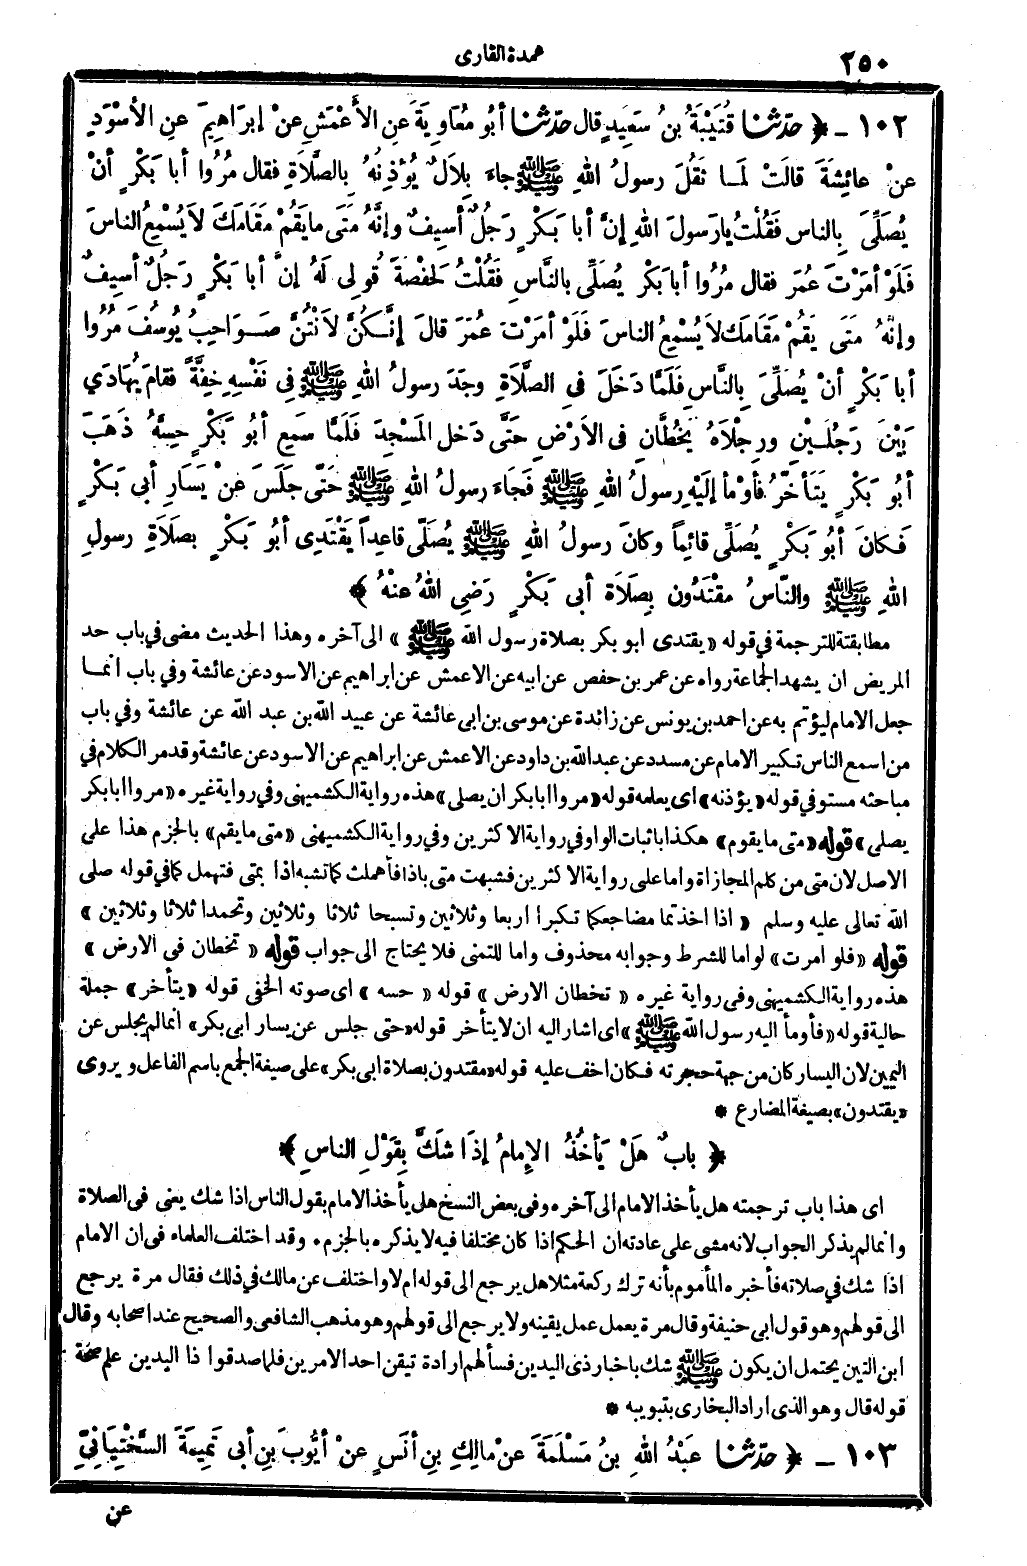 ٢٥٠
عمدة القارى
١٠٢ ـ ﴿ حَدَّثَنَا قُتَيْبَةُ بنُ سَعِيدٍ قال حَدَّثَنَا أبُو مُعَاوِيَةَ عَنِ الأَعْمَشِ عنْ إبْرَاهِيمَ عَنِ الأَسْوَدِ
عنْ عائِشَةَ قالَتْ لَمَّا ثَقُلَ رسولُ اللهِ ﷺ جاءَ بِلاَلٌ يُؤْذِنُهُ بِالصَّلاَةِ فقال مُرُوا أبا بَكْرٍ أنْ
يُصَلِّىَ بِالناسِ فَقُلْتُ يارَسولَ اللهِ إنَّ أبا بَكْرٍ رَجُلٌ أسِيفٌ وإنَّهُ مَتَى مايَقُمْ مَقَامَكَ لاَ يُسْمِعُ الناسَ
فَلَوْ أمَرْتَ عُمَرَ فقال مُرُوا أبا بَكْرٍ يُصَلِّى بالنَّاسِ فَقُلْتُ لحَفْصَةَ قُولِى لَهُ إنَّ أبا بَكْرٍ رَجُلٌ أسِيفٌ
وإنَّهُ مَتَى يَقُمْ مَقَامَكَ لاَ يُسْمِعُ الناسَ فَلَوْ أمَرْتَ عُمَرَ قالَ إنَّكُنَّ لَأَنْتُنَّ صَوَاحِبُ يُوسُفَ مُرُوا
أبا بَكْرٍ أنْ يُصَلِّىَ بِالنَّاسِ فَلَمَّا دَخَلَ فى الصَّلاَةِ وجَدَ رسولُ اللهِ ﷺ فى نَفْسِهِ خِفَّةً فقامَ يُهَادَى
بَيْنَ رَجُلَيْنِ ورِجْلاَهُ يَخُطَّانِ فى الأَرْضِ حَتَّى دَخل المَسْجِدَ فَلَمَّا سَمِعَ أبُو بَكْرٍ حِسَّهُ ذَهَبَ
أبُو بَكْرٍ يَتَأخَّرُ فأوْمأ إلَيْهِ رسولُ اللهِ ﷺ فَجَاءَ رسولُ اللهِ ﷺ حَتَّى جلَسَ عنْ يَسَارِ أبى بَكْرٍ
فَكانَ أبُو بَكْرٍ يُصَلِّى قائِماً وكانَ رسولُ اللهِ ﷺ يُصَلِّى قاعِداً يَقْتَدِى أبُو بَكْرٍ بصَلاَةِ رسولِ
اللهِ ﷺ والنَّاسُ مقْتَدُون بِصَلاَةِ أبى بَكْرٍ رَضِى اللهُ عنْهُ ﴾
مطابقته للترجمة في قوله «يقتدى ابو بكر بصلاة رسول الله ﷺ» الى آخره وهذا الحديث مضى في باب حد
المريض ان يشهد الجماعة رواه عن عمر بن حفص عن ابيه عن الاعمش عن ابراهيم عن الاسود عن عائشة وفي باب انما
جعل الامام ليؤتم به عن احمد بن يونس عن زائدة عن موسى بن ابى عائشة عن عبيد الله بن عبد الله عن عائشة وفي باب
من اسمع الناس تكبير الامام عن مسدد عن عبد الله بن داود عن الاعمش عن ابراهيم عن الاسود عن عائشة وقد مر الكلام في
مباحثه مستوفي قوله «يؤذنه» اى يعلمه قوله «مروا ابابكر ان يصلى» هذه رواية الكشميهنى وفي رواية غيره «مروا ابابكر
يصلى» قوله «متى ما يقوم» هكذا باثبات الواو في رواية الاكثرين وفي رواية الكشميهنى «متى مايقم» بالجزم هذا على
الاصل لان متى من كلم المجازاة واما على رواية الاكثرين فشبهت متى باذا فأهملت كما تشبه اذا بمتى فتهمل كما في قوله صلى
الله تعالى عليه وسلم « اذا اخذتما مضاجعكما تكبرا اربعا وثلاثين وتسبحا ثلاثا وثلاثين وتحمدا ثلاثا وثلاثين »
قوله «فلو امرت» لو اما للشرط وجوابه محذوف واما للتمنى فلا يحتاج الى جواب قوله « تخطان فى الارض »
هذه رواية الكشميهنى وفى رواية غيره « تخطان الارض » قوله « حسه » اى صوته الخفى قوله «يتأخر» جملة
حالية قوله «فأومأ اليه رسول الله ﷺ» اى اشار اليه ان لا يتأخر قوله «حتى جلس عن يسار ابى بكر» انما لم يجلس عن
اليمين لان اليسار كان من جهة حجرته فكان اخف عليه قوله «مقتدون بصلاة ابى بكر» على صيغة الجمع باسم الفاعل ويروى
«يقتدون» بصيغة المضارع *
﴿ بابٌ هَلْ يَأخُذُ الإمامُ إذَا شَكَّ بِقَوْلِ الناسِ ﴾
اى هذا باب ترجمته هل يأخذ الامام الى آخره وفى بعض النسخ هل يأخذ الامام بقول الناس اذا شك يعنى فى الصلاة
وانما لم يذكر الجواب لانه مشى على عادته ان الحكم اذا كان مختلفا فيه لا يذكره بالجزم. وقد اختلف العلماء فى ان الامام
اذا شك في صلاته فأخبره المأموم بأنه ترك ركعة مثلا هل يرجع الى قوله ام لا واختلف عن مالك في ذلك فقال مرة يرجع
الى قولهم وهو قول ابى حنيفة وقال مرة يعمل عمل يقينه ولا يرجع الى قولهم وهو مذهب الشافعى والصحيح عند اصحابه وقال
ابن التين يحتمل ان يكون ﷺ شك باخبار ذى اليدين فسألهم ارادة تيقن احد الامرين فلما صدقوا ذا اليدين علم صحة
قوله قال وهو الذى اراد البخارى بتبويبه *
١٠٣ ـ ﴿ حَدَّثَنَا عَبْدُ اللهِ بنُ مَسْلَمَةَ عنْ مالِكِ بنِ أنَسٍ عنْ أيُّوبَ بنِ أبى تَمِيمَةَ السَّخْتِيَانِيِّ
عن